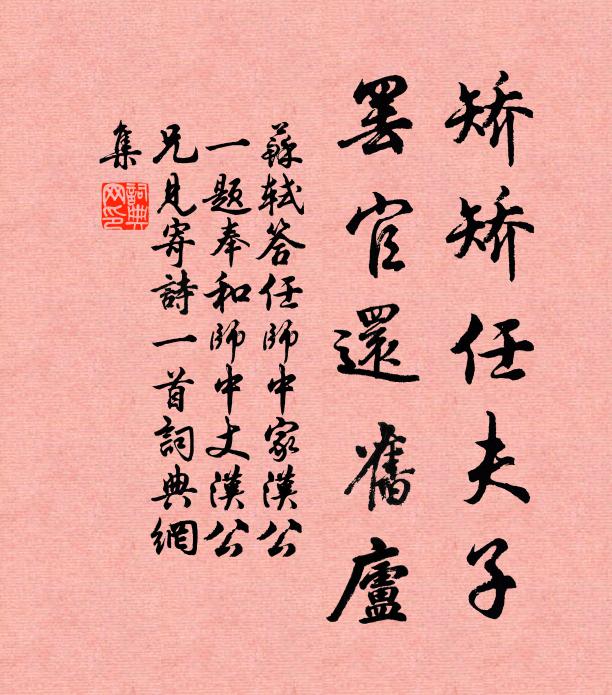 矯矯任夫子
罷官還舊廬
蘇軾答任師中家漢公
一題奉和師中丈漢公
兄見寄詩一首詞典網
集
詞典
网印